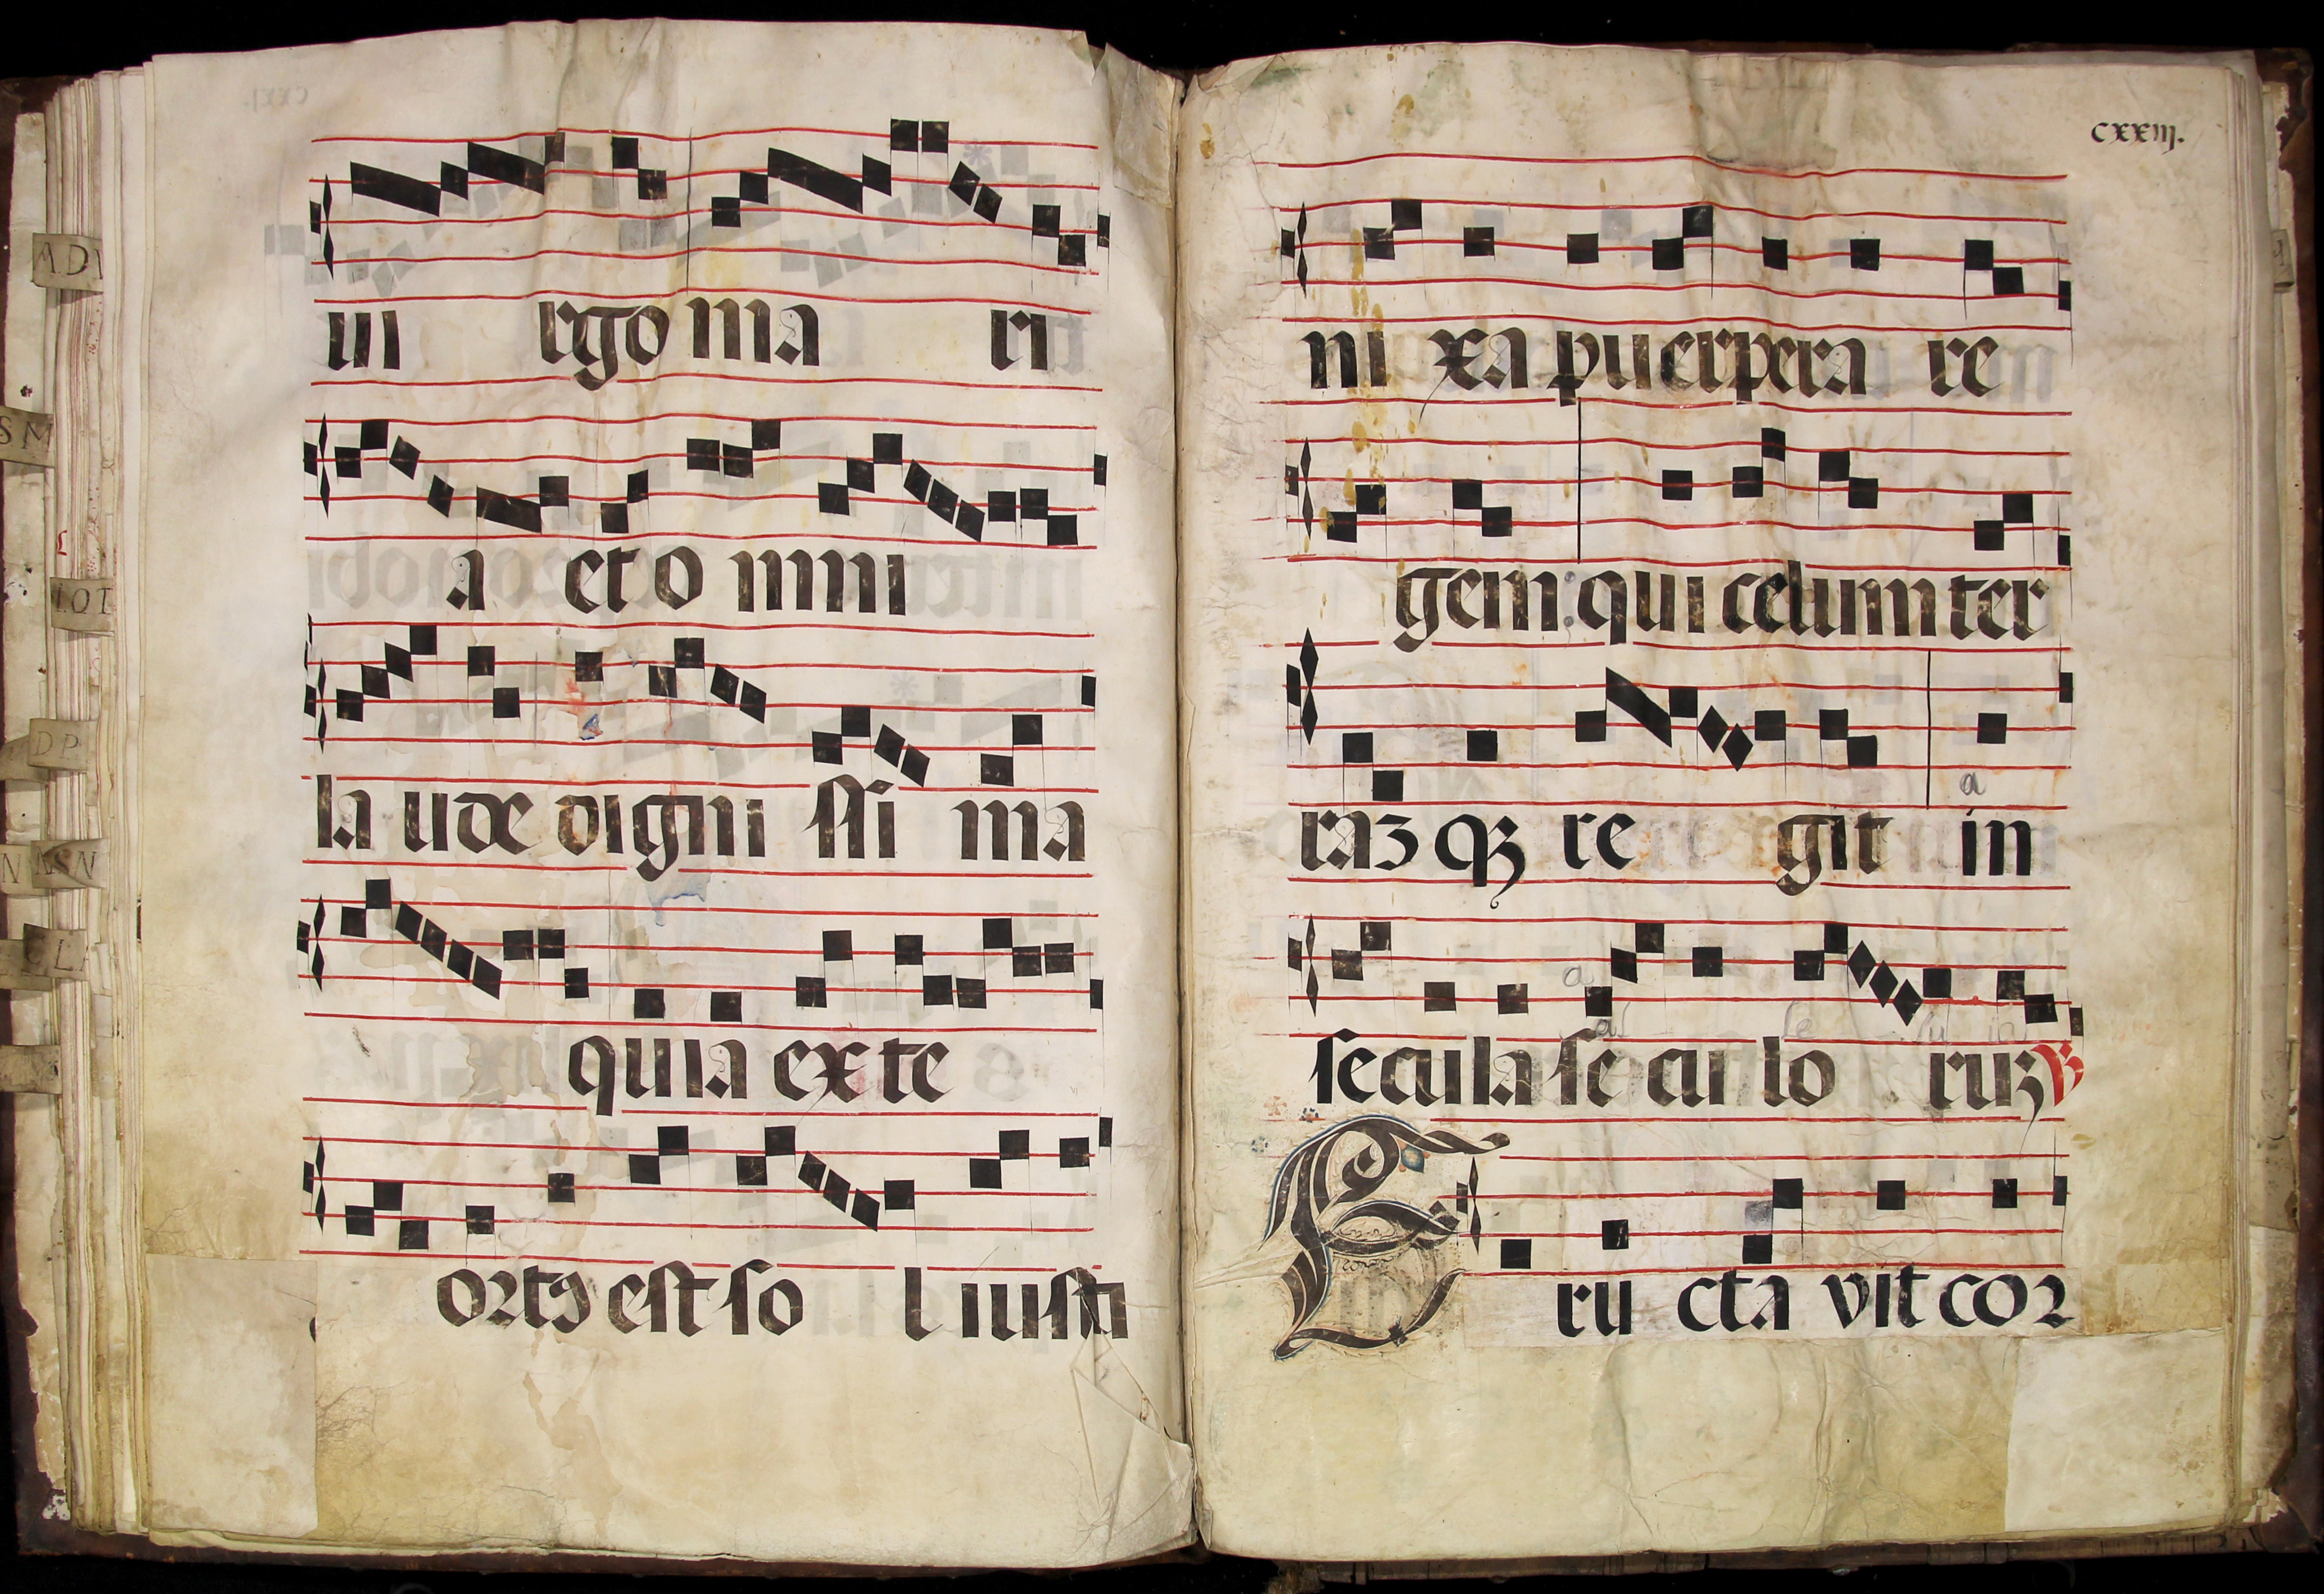 ui rgo ma ri
a et o mni
la ude digni ssi ma
quia ex te
ortꝯ est so l iusti
cxxiij.
ni xa puerpera re
gem: qui celum ter
raʒ qʒ re git in
a
a
al le lu ia
secula se cu lo ruʒ ℟
E ru cta vit cor
ADV
SM
LOT
DP
N NSN
CL